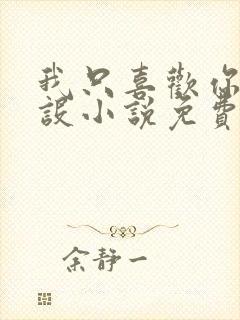 我只喜歡你
設小說免費
余靜一